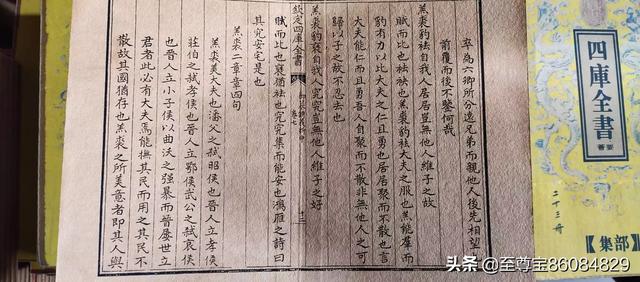 卒為六卿所分遠兄弟而親他人後先相望
前覆而後不鑒何哉
羔裘豹袪自我人居居豈無他人維子之故
賦而比也袪袂也羔裘豹袪大夫之服也羔能羣而
豹有力以比大夫之仁且勇也居居聚而不散也言
大夫能仁而且勇吾人自聚而不散非無他人之可
歸以子之故不忍去也
羔裘豹褎自我人究究豈無他人維子之好
欽定四庫全書
卷七
十三
賦而比也褎猶袪也究究集而能安也鴻雁之詩曰
其究安宅是也
羔裘二章章四句
羔裘美大夫也潘父之弑昭侯也晉人立孝侯
莊伯之弑孝侯也晉人立鄂侯武公之弑哀侯
也晉人立小子侯以曲沃之強暴而晉屢世立
君者此必有大夫焉能撫其民而用之其民不
散故其國猶存也羔裘之所美意者即其人與
四庫全書
薈要
二十三冊
【集部】
头条 @至尊宝86084829